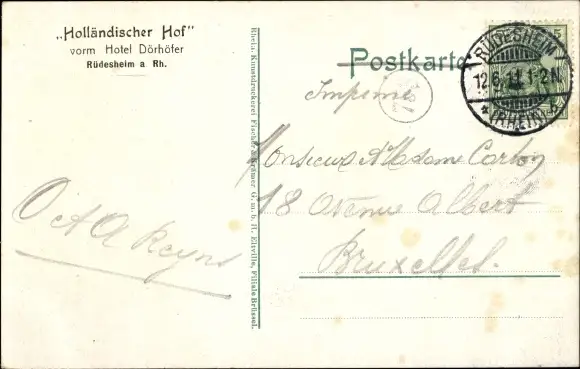 „Holländischer Hof"
vorm Hotel Dörhöfer
Rüdesheim a Rh.
Postkarte
RÜDESHEIM
12.6.11.1-2N
*(RHEIN)*
Imprimé
Monsieur & Madame Carlon
18 Avenue Albert
Bruxelles.
O et A Reyns
Rhein. Kunstdruckerei Fischer & Krämer G. m. b. H. Eltville, Filiale Brüssel.